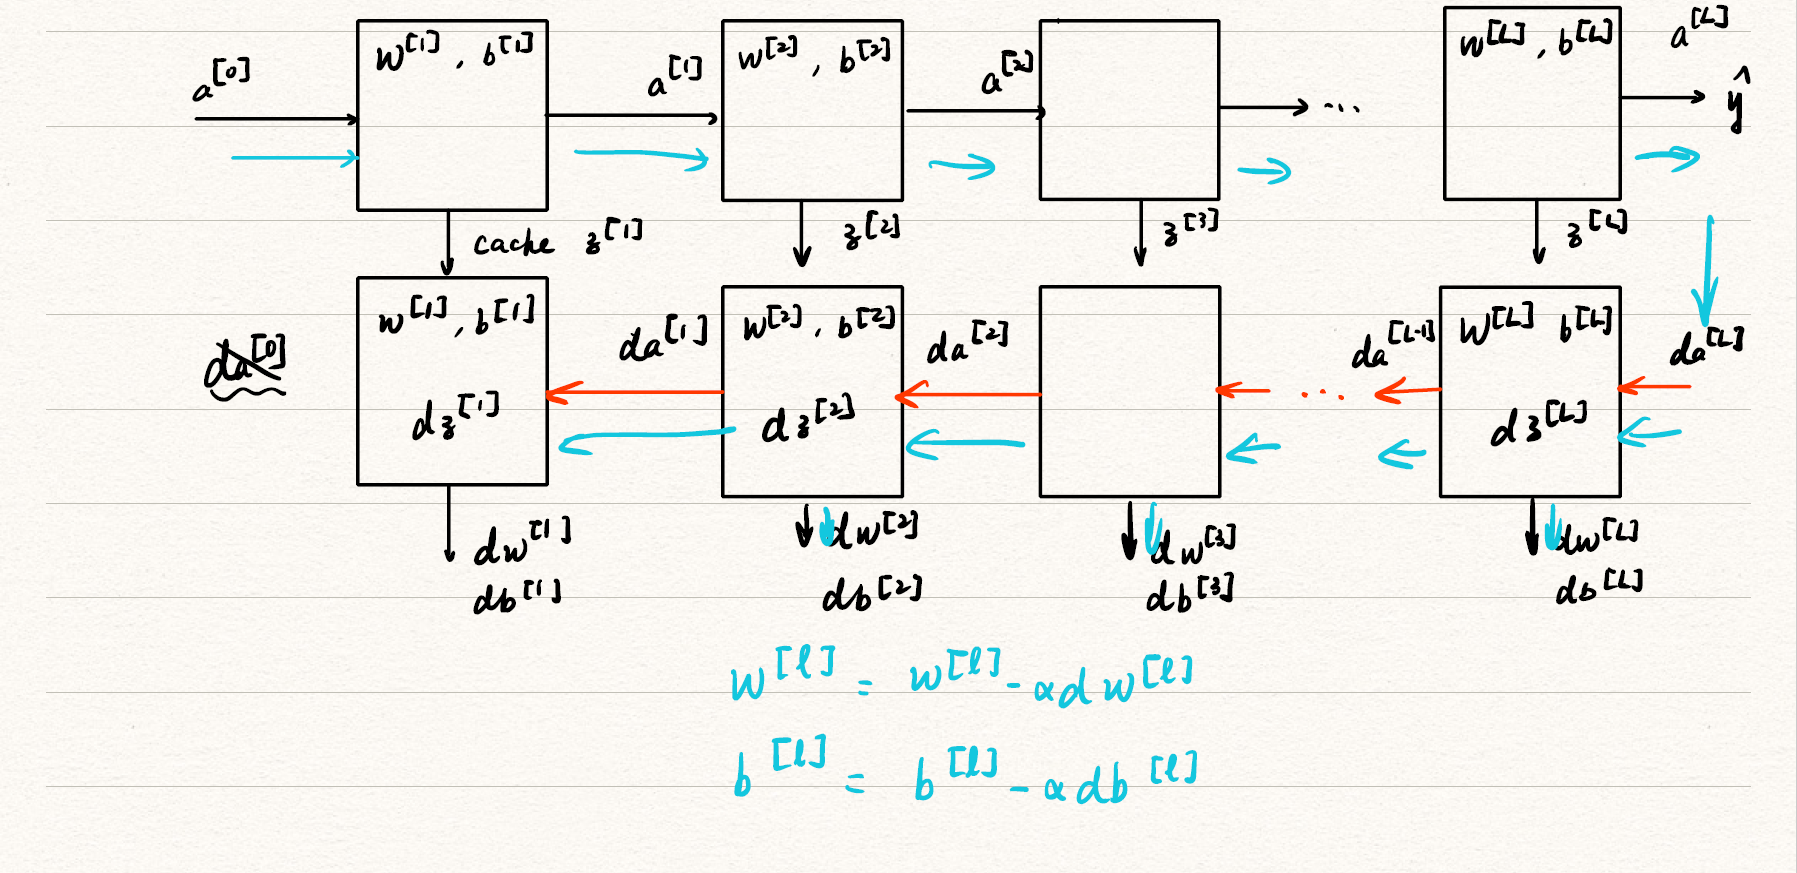 a[0] w[1], b[1] a[1] w[2], b[2] a[2] ... w[L], b[L] a[L] ŷ
cache z[1] z[2] z[3] z[L]
da[0] w[1], b[1] da[1] w[2], b[2] da[2] ... da[L-1] w[L] b[L] da[L]
dz[1] dz[2] dz[L]
dw[1] dw[2] dw[3] dw[L]
db[1] db[2] db[3] db[L]
w[l] = w[l] - αdw[l]
b[l] = b[l] - αdb[l]